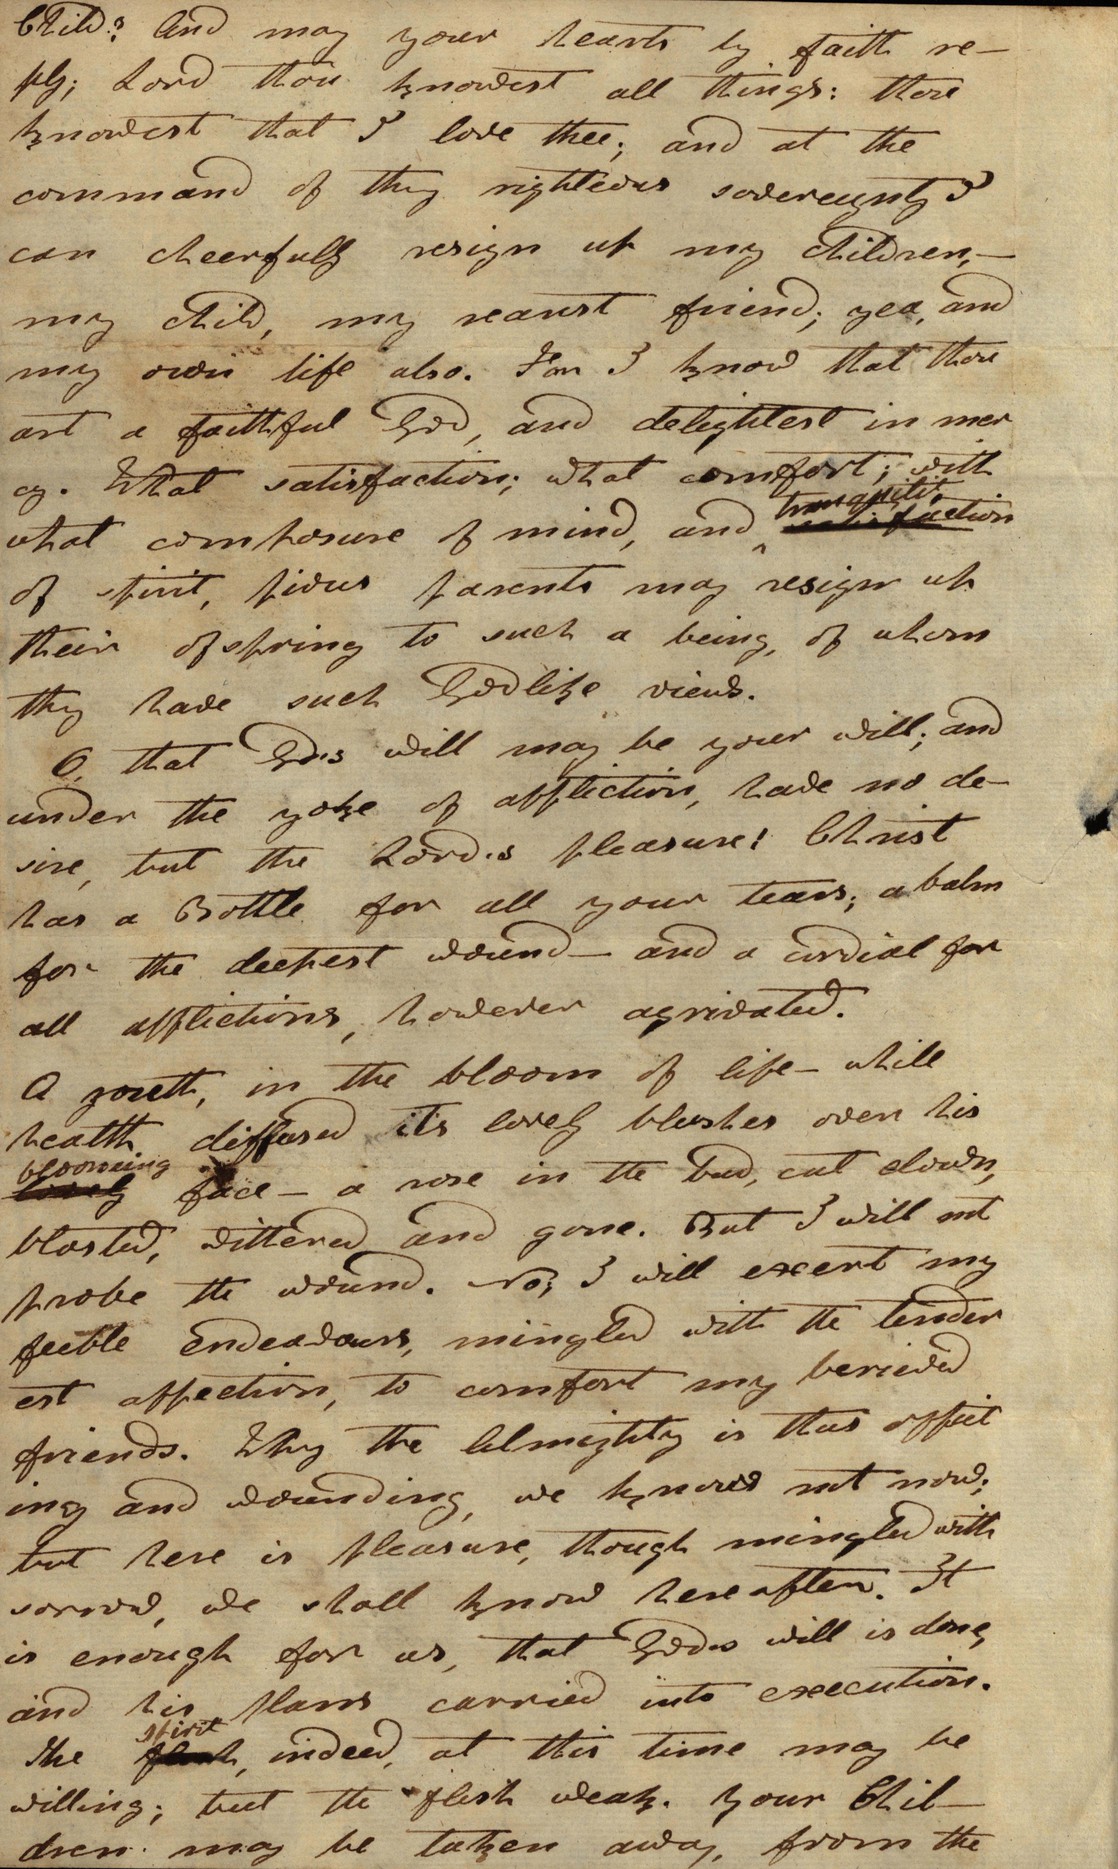 Child? And may your hearts by faith re-
ply; Lord thou knowest all things: thou
knowest that I love thee; and at the
command of thy righteous sovereignty I
can cheerfully resign up my children,—
my child, my nearest friend; yea, and
my own life also. For I know that thou
art a faithful God, and delightest in mer
cy. What satisfaction; what comfort; with
what composure of mind, and ^ tranquility satisfaction
of spirit, pious parents may resign up
their ofspring to such a being, of whom
they have such Godlike views.
O, that Gods will may be your will; and
under the yoke of affliction, have no de-
sire, but the Lord's pleasure! Christ
has a Bottle for all your tears; a balm
for the deepest wound— and a cordial for
all afflictions, however agrivated.
A youth, in the bloom of life— while
health diffused its lovely blushes over his
blooming lovely face— a rose in the bud, cut down,
blasted, wittered and gone. But I will not
probe the wound. No; I will exert my
feeble Endeavours, mingled with the tender
est affection, to comfort my berieved
friends. Why the Almighty is thus afflict
ing and wounding, we know not now;
but here is pleasure, though mingled with
sorrow, we shall know hereafter. It
is enough for us, that Gods will is done,
and his plans carried into execution.
The spirit flesh, indeed, at this time may be
willing; but the flesh weak. Your Chil-
dren may be taken away, from the